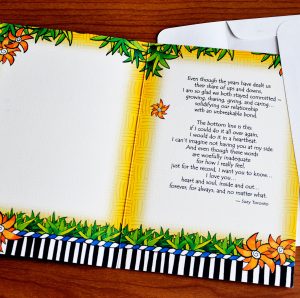 Even though the years have dealt us
their share of ups and downs,
I am so glad we both stayed committed –
growing, sharing, giving, and caring...
solidifying our relationship
with an unbreakable bond.
The bottom line is this:
if I could do it all over again,
I would do it in a heartbeat.
I can't imagine not having you at my side.
And even though these words
are woefully inadequate
for how I really feel,
just for the record, I want you to know...
I love you...
heart and soul, inside and out...
forever, for always, and no matter what.
— Suzy Toronto